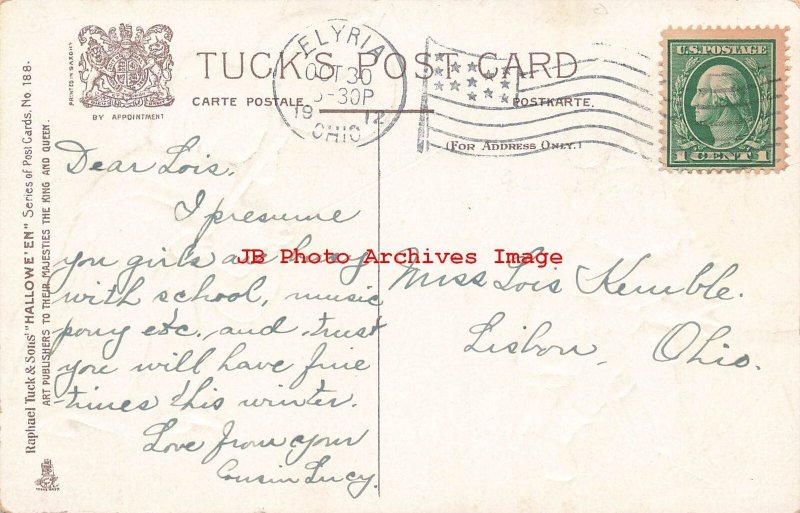 TUCK'S POST CARD
CARTE POSTALE.
POSTKARTE.
(FOR ADDRESS ONLY.)
PRINTED IN SAXONY
BY APPOINTMENT
ELYRIA
OCT 30
-30P
1912
OHIO
U.S. POSTAGE
1 CENT 1
Raphael Tuck & Sons' "HALLOWE'EN" Series of Post Cards. No. 188.
ART PUBLISHERS TO THEIR MAJESTIES THE KING AND QUEEN.
Dear Lois.
I presume
you girls are busy
with school, music
pony etc., and trust
you will have fine
times this winter.
Love from your
Cousin Lucy.
Miss Lois Kemble.
Lisbon, Ohio.
JB Photo Archives Image